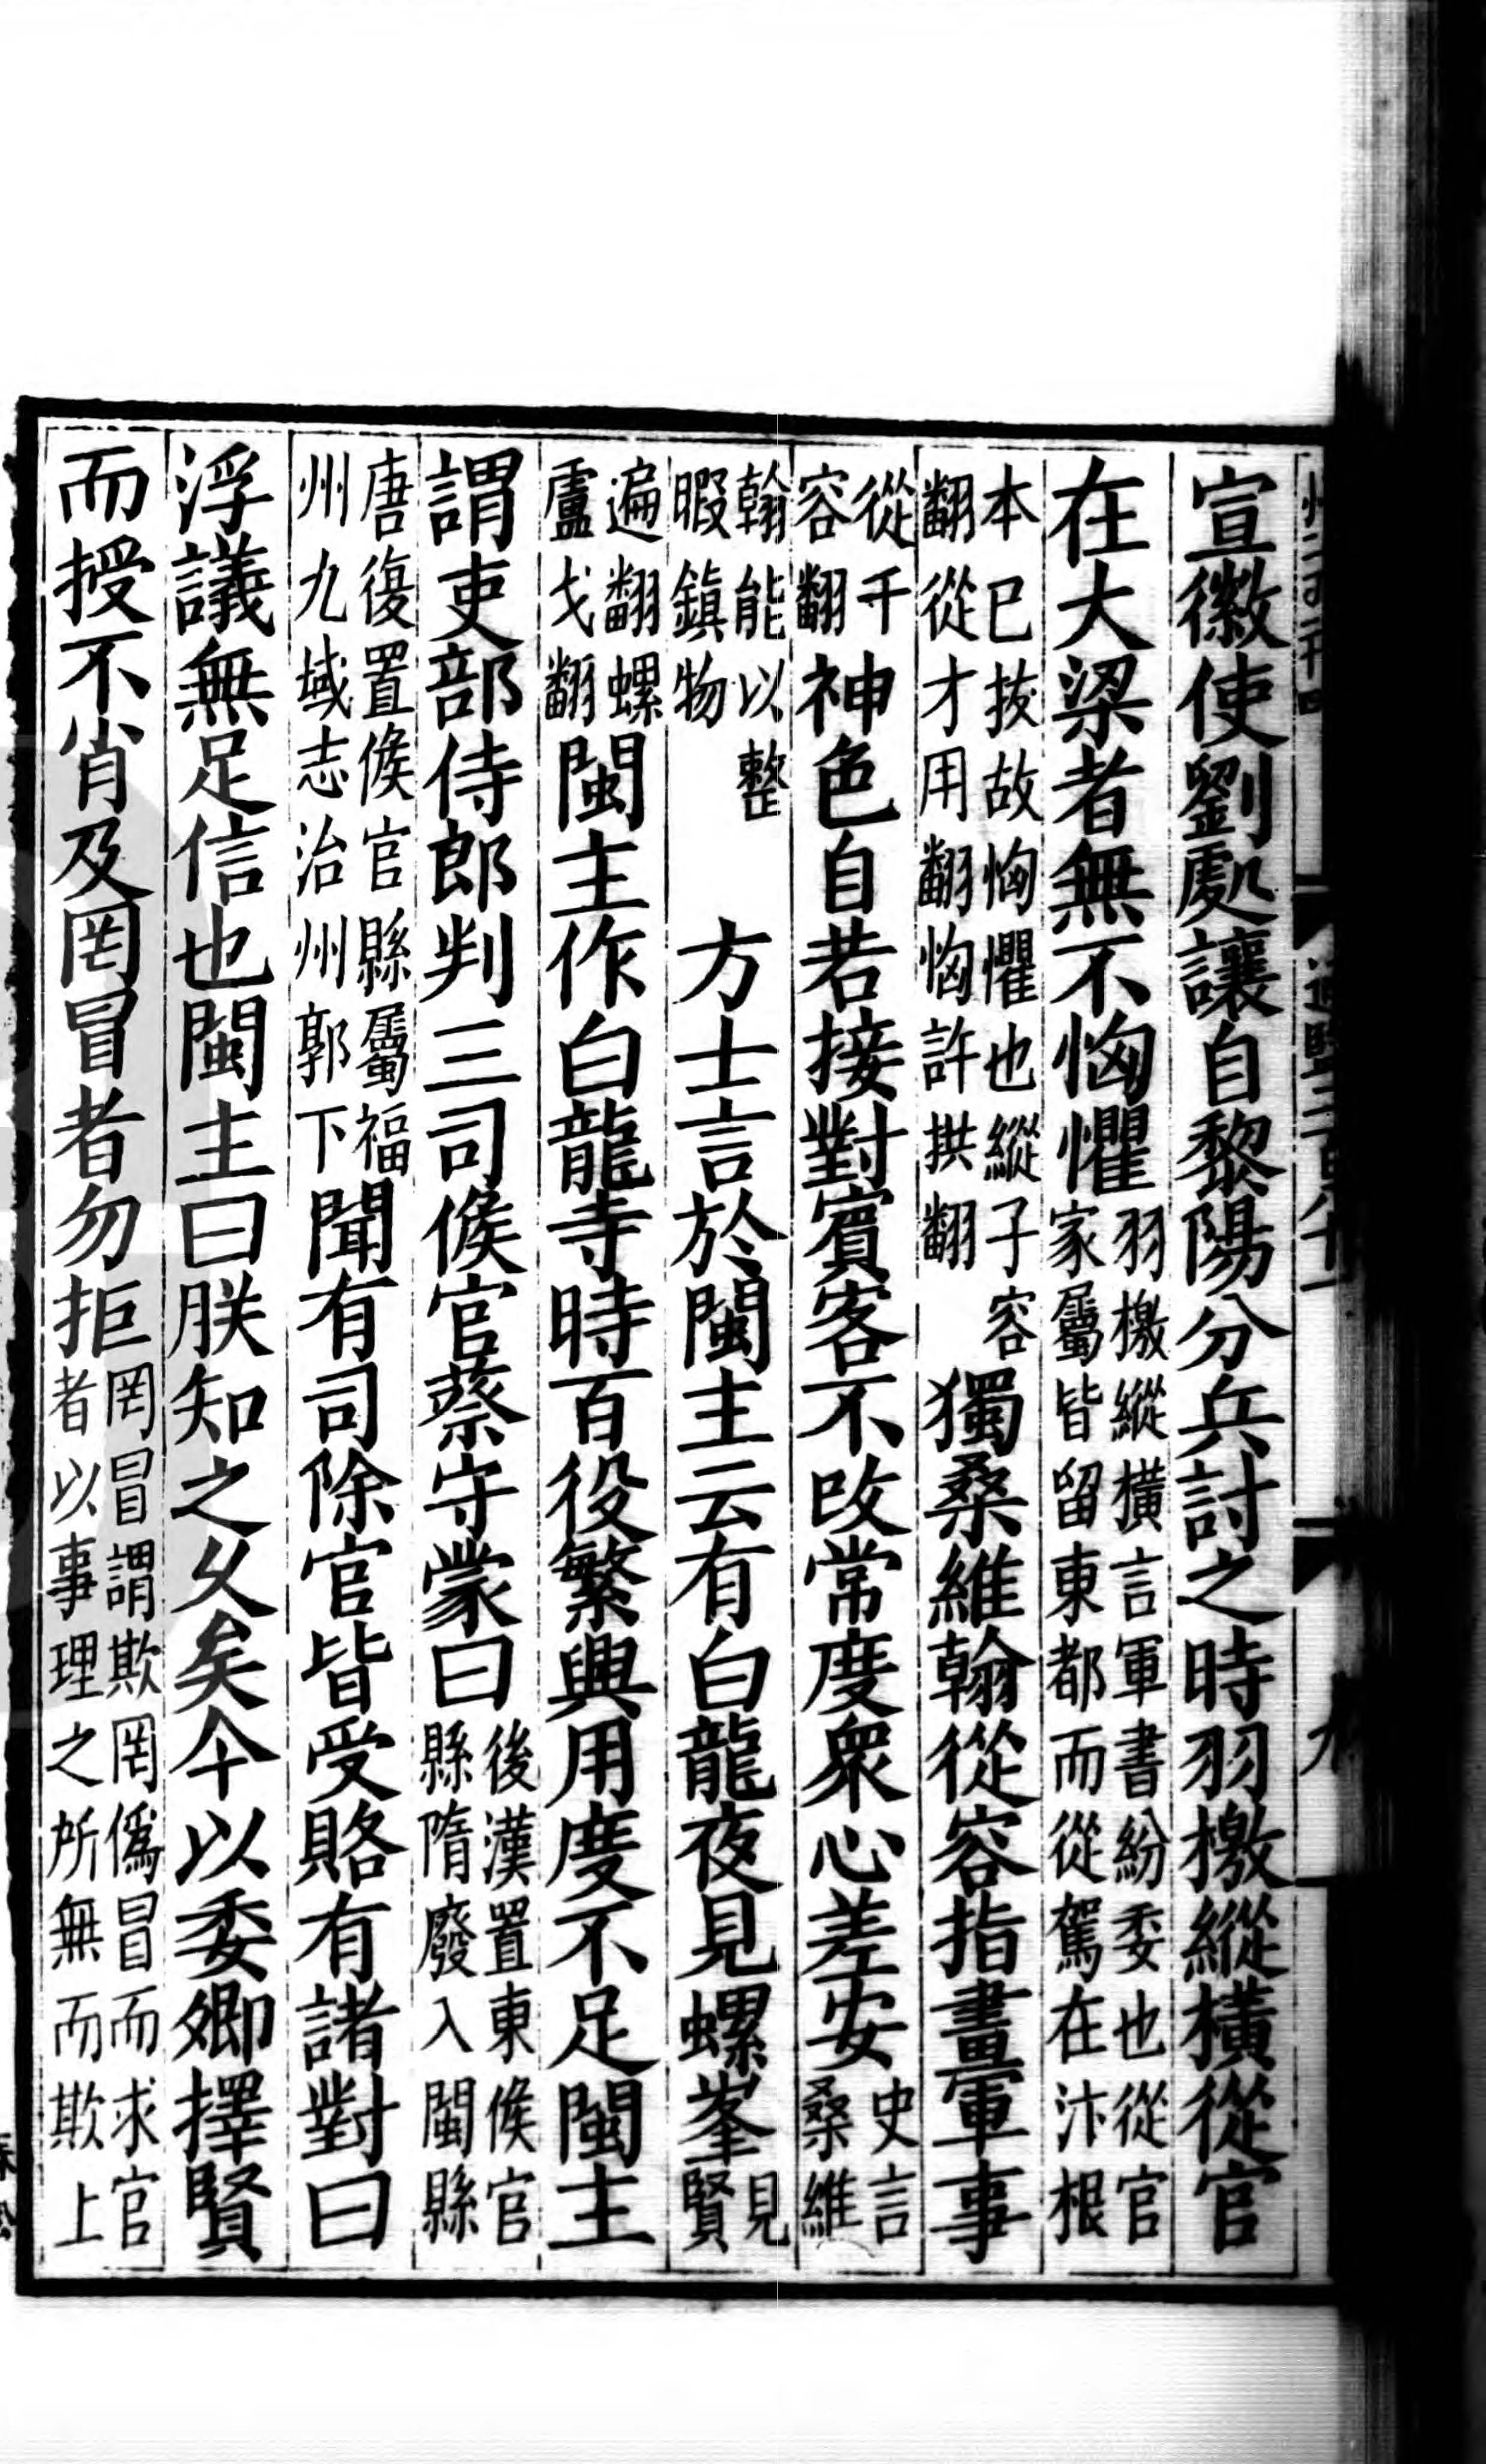 宣徽使劉處讓自黎陽分兵討之時羽檄縱橫從官
在大梁者無不恟懼羽檄縱橫言軍書紛委也從官家屬皆留東都而從駕在汴根
本已拔故恟懼也縱子容翻從才用翻恟許拱翻獨桑維翰從容指畫軍事
從千容翻神色自若接對賓客不改常度衆心差安史言桑維
翰能以整暇鎮物方士言於閩主云有白龍夜見螺峯見賢
遍翻螺盧戈翻閩主作白龍寺時百役繁興用度不足閩主
謂吏部侍郎判三司候官蔡守蒙曰後漢置東候官縣隋廢入閩縣
唐復置候官縣屬福州九域志治州郭下聞有司除官皆受賂有諸對曰
浮議無足信也閩主曰朕知之久矣今以委卿擇賢
而授不肖及罔冒者勿拒罔冒謂欺罔僞冒而求官者以事理之所無而欺上